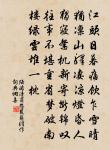 江頭日暮痛飲乍雪晴
猶凜山驛淒涼燈昏人
獨寢鴛機新寄斷錦嘆
往事不堪重省夢破南
樓綠雲堆一枕
陸游清商怨葭萌驛作